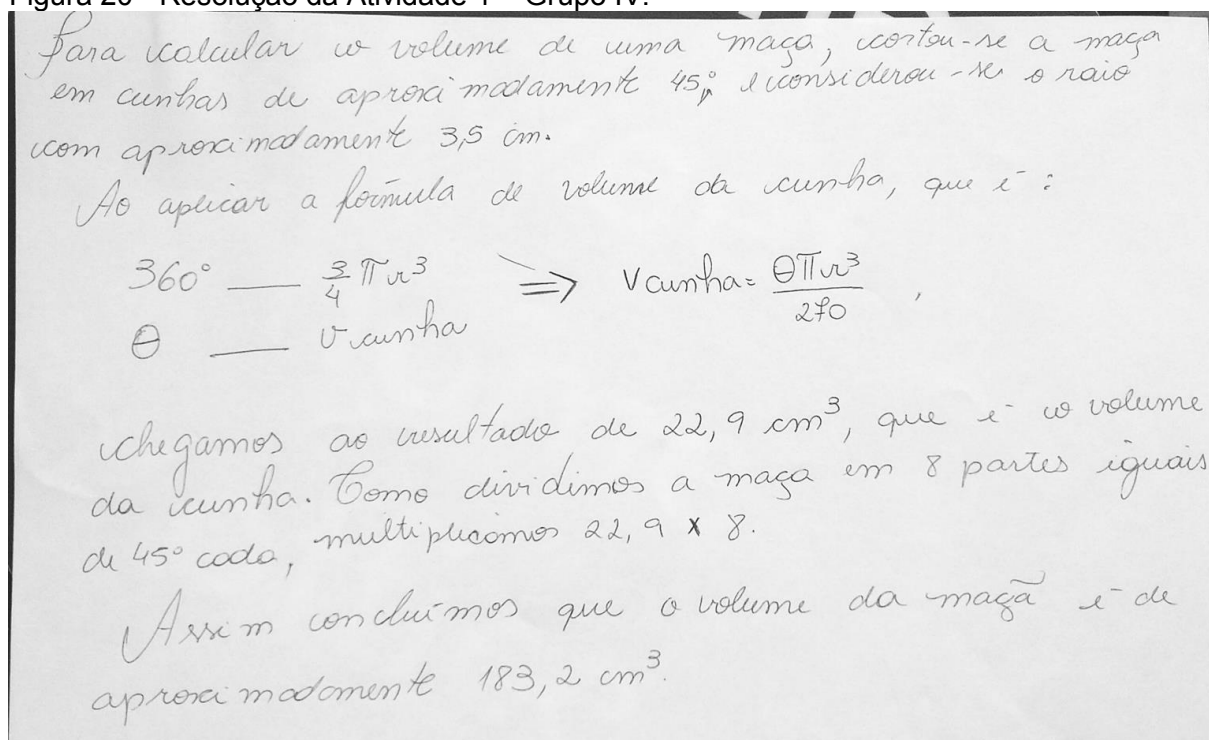 Figura 20 - Resolução da Atividade 1 – Grupo IV.
Para calcular o volume de uma maça, cortou-se a maça
em cunhas de aproximadamente 45°, e considerou-se o raio
com aproximadamente 3,5 cm.
Ao aplicar a fórmula de volume da cunha, que é:
360° — 3/4 πr³ ⇒ Vcunha = θπr³/270 ,
θ — Vcunha
chegamos ao resultado de 22,9 cm³, que é o volume
da cunha. Como dividimos a maça em 8 partes iguais
de 45° cada, multiplicamos 22,9 x 8.
Assim concluímos que o volume da maçã é de
aproximadamente 183,2 cm³.